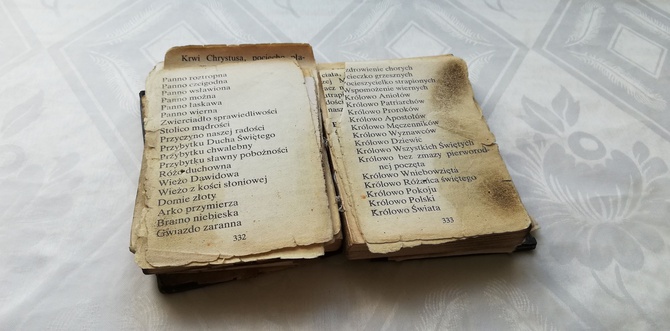 Krwi Chrystusa, pociecho
Panno roztropna
Panno czcigodna
Panno wsławiona
Panno można
Panno łaskawa
Panno wierna
Zwierciadło sprawiedliwości
Stolico mądrości
Przyczyno naszej radości
Przybytku Ducha Świętego
Przybytku chwalebny
Przybytku sławny pobożności
Różo duchowna
Wieżo Dawidowa
Wieżo z kości słoniowej
Domie złoty
Arko przymierza
Bramo niebieska
Gwiazdo zaranna
332
zdrowienie chorych
cieczko grzesznych
ocieszycielko strapionych
Wspomożenie wiernych
Królowo Aniołów
Królowo Patriarchów
Królowo Proroków
Królowo Apostołów
Królowo Męczenników
Królowo Wyznawców
Królowo Dziewic
Królowo Wszystkich Świętych
Królowo bez zmazy pierworod-
nej poczęta
Królowo Wniebowzięta
Królowo Różańca świętego
Królowo Pokoju
Królowo Polski
Królowo Świata
333